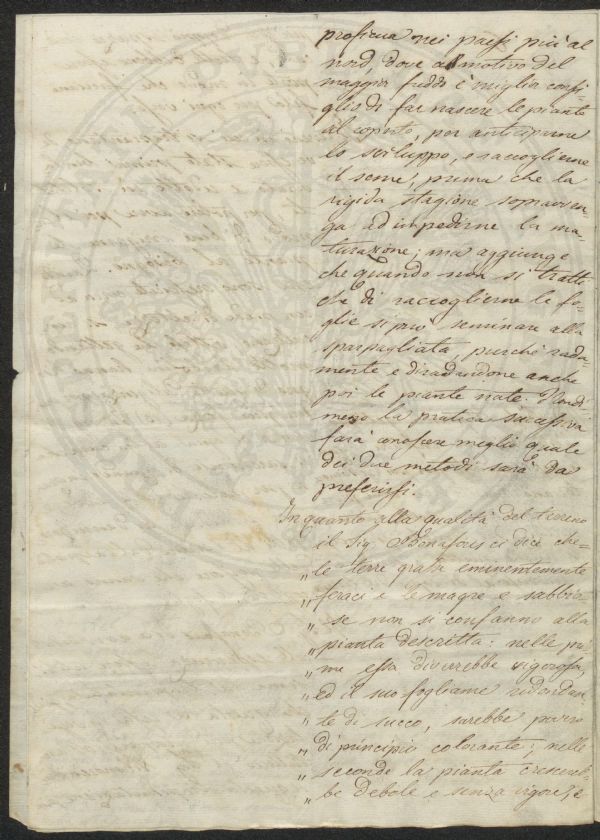 proficua nei paesi più al
nord, dove a motivo del
maggior freddo è miglior consi-
glio di far nascere le piante
al coperto, per anticiparne
lo sviluppo, e raccoglierne
il seme, prima che la
rigida stagione sopraven-
ga ad impedirne la ma-
turazione; ma aggiunge
che quando non si tratti
che di raccoglierne le fo-
glie si può seminare alla
sparpagliata, purchè rada-
mente e diradandone anche
poi le piante nate. Nondi-
meno la pratica successiva
farà conoscere meglio quale
dei due metodi sarà da
preferirsi.
In quanto alla qualità del terreno
il Sig. Bonafous ci dice che-
„ le terre grasse eminentemente
„ feraci e le magre e sabbio-
„ se non si confanno alla
„ pianta descritta: nelle pri-
„ me essa diverebbe vigorosa,
„ ed il suo fogliame ridondan-
„ te di succo, sarebbe povero
„ di principio colorante; nelle
„ seconde la pianta crescereb-
„ be debole e senza vigore, e